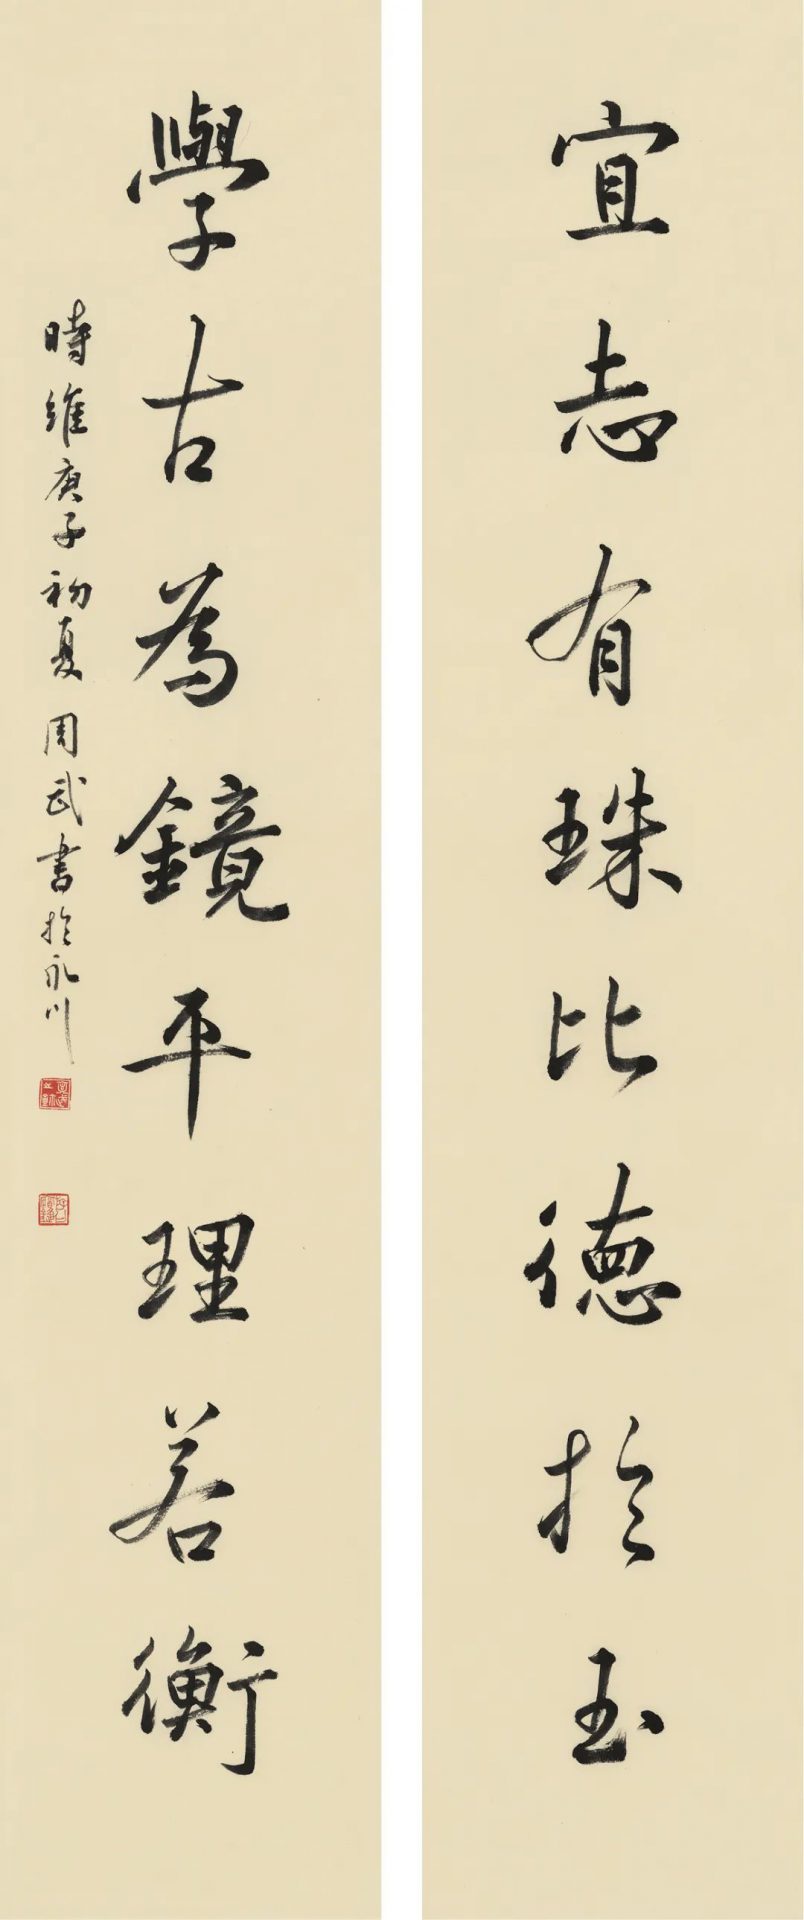 宜志有珠比德於玉
學古為鏡平理若衡
時維庚子初夏周武書於永川